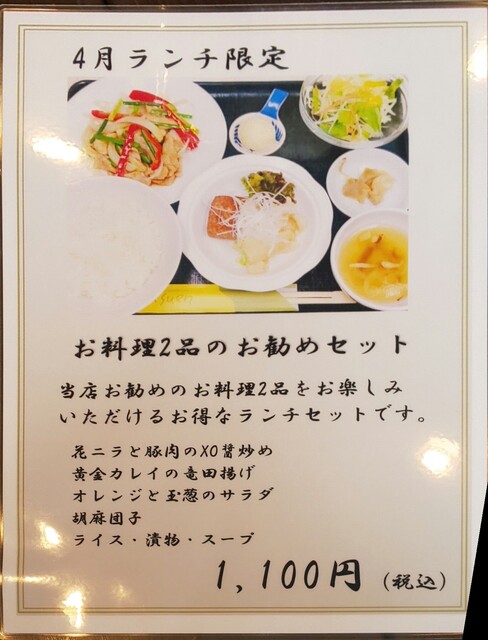 4月ランチ限定
お料理2品のお勧めセット
当店お勧めのお料理2品をお楽しみ
いただけるお得なランチセットです。
花ニラと豚肉のXO醤炒め
黄金カレイの竜田揚げ
オレンジと玉葱のサラダ
胡麻団子
ライス・漬物・スープ
1,100円(税込)